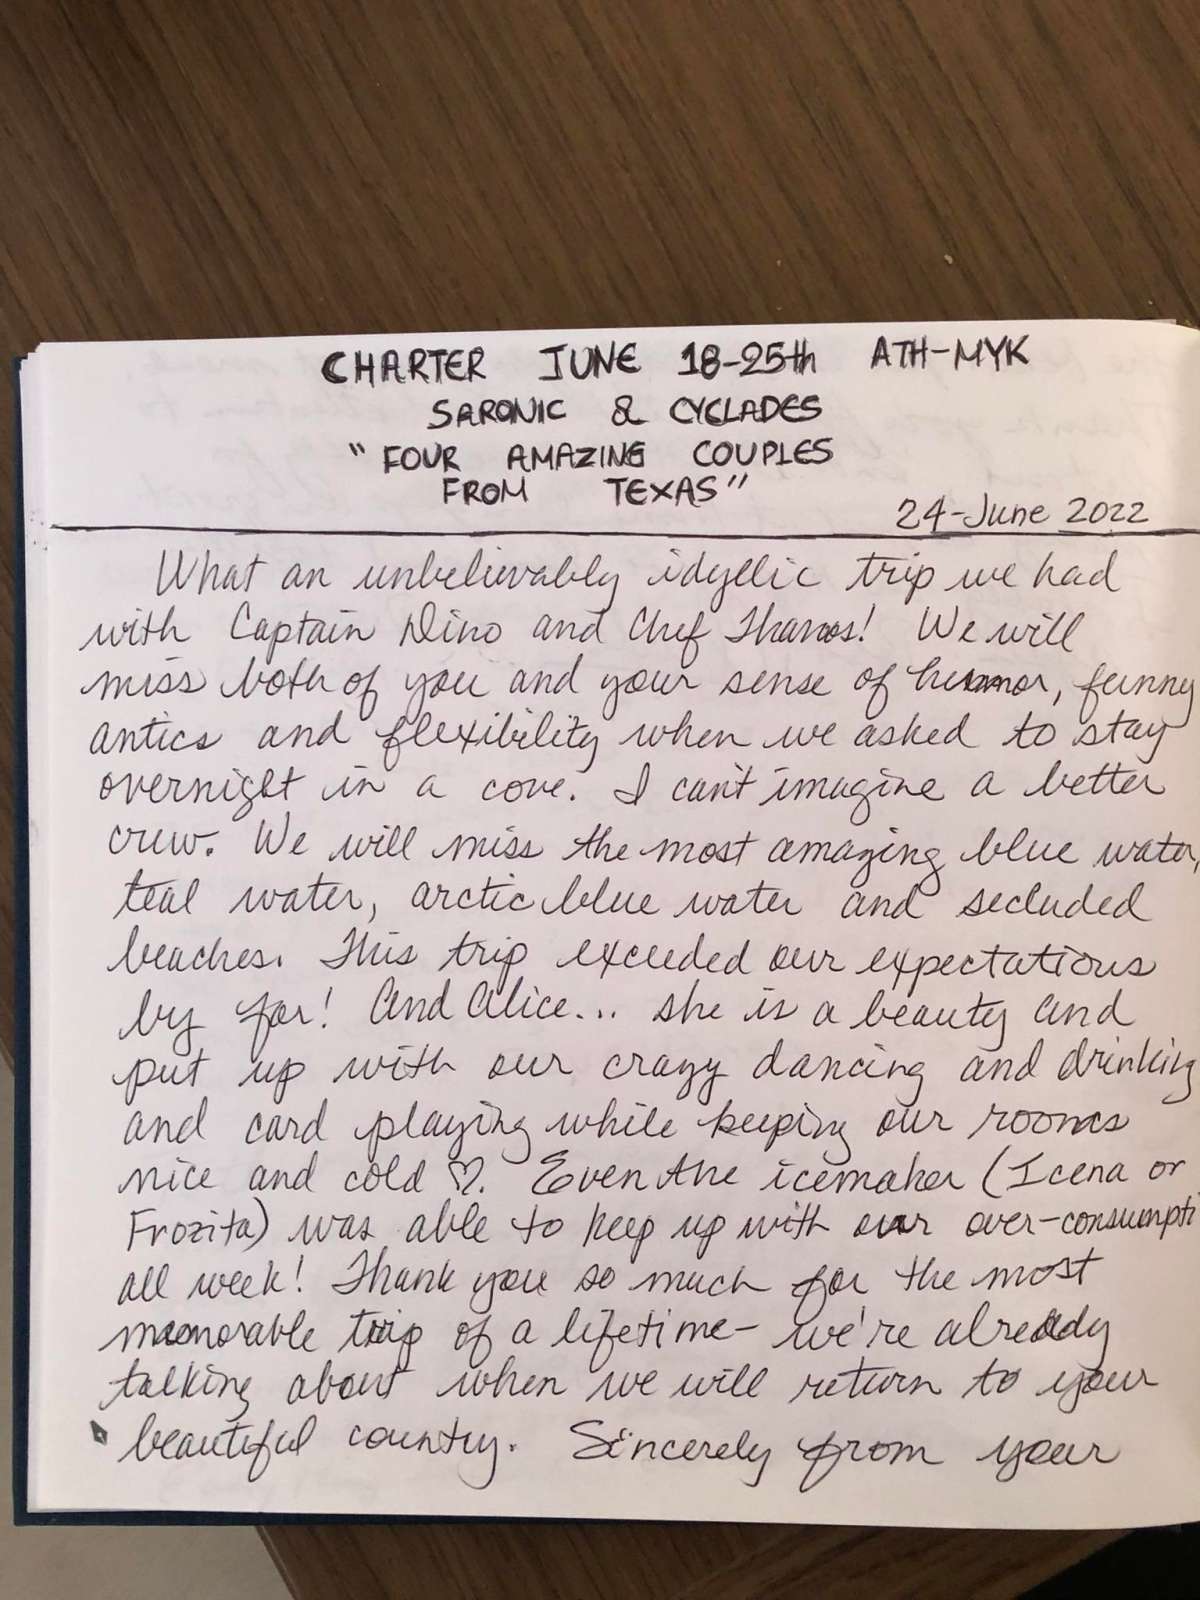 CHARTER JUNE 18-25th ATH-MYK
SARONIC & CYCLADES
"FOUR AMAZING COUPLES
FROM TEXAS"
24-June 2022
What an unbelievably idyllic trip we had
with Captain Dino and Chef Thanos! We will
miss both of you and your sense of humor, funny
antics and flexibility when we asked to stay
overnight in a cove. I can't imagine a better
crew. We will miss the most amazing blue water,
teal water, arctic blue water and secluded
beaches. This trip exceeded our expectations
by far! And Alice... she is a beauty and
put up with our crazy dancing and drinking
and card playing while keeping our rooms
nice and cold ♡. Even the icemaker (Icena or
Frozita) was able to keep up with our over-consumpti
all week! Thank you so much for the most
memorable trip of a lifetime- we're already
talking about when we will return to your
beautiful country. Sincerely from your